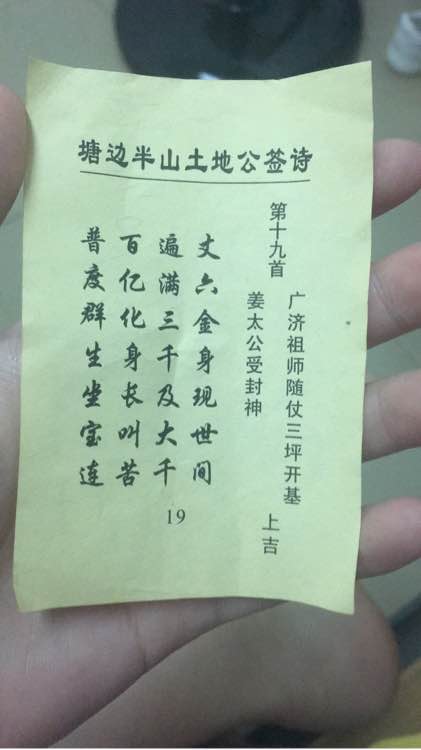 塘边半山土地公签诗
第十九首
广济祖师随仗三坪开基
姜太公受封神
上吉
丈六金身现世间
遍满三千及大千
百亿化身长叫苦
普度群生坐宝连
19